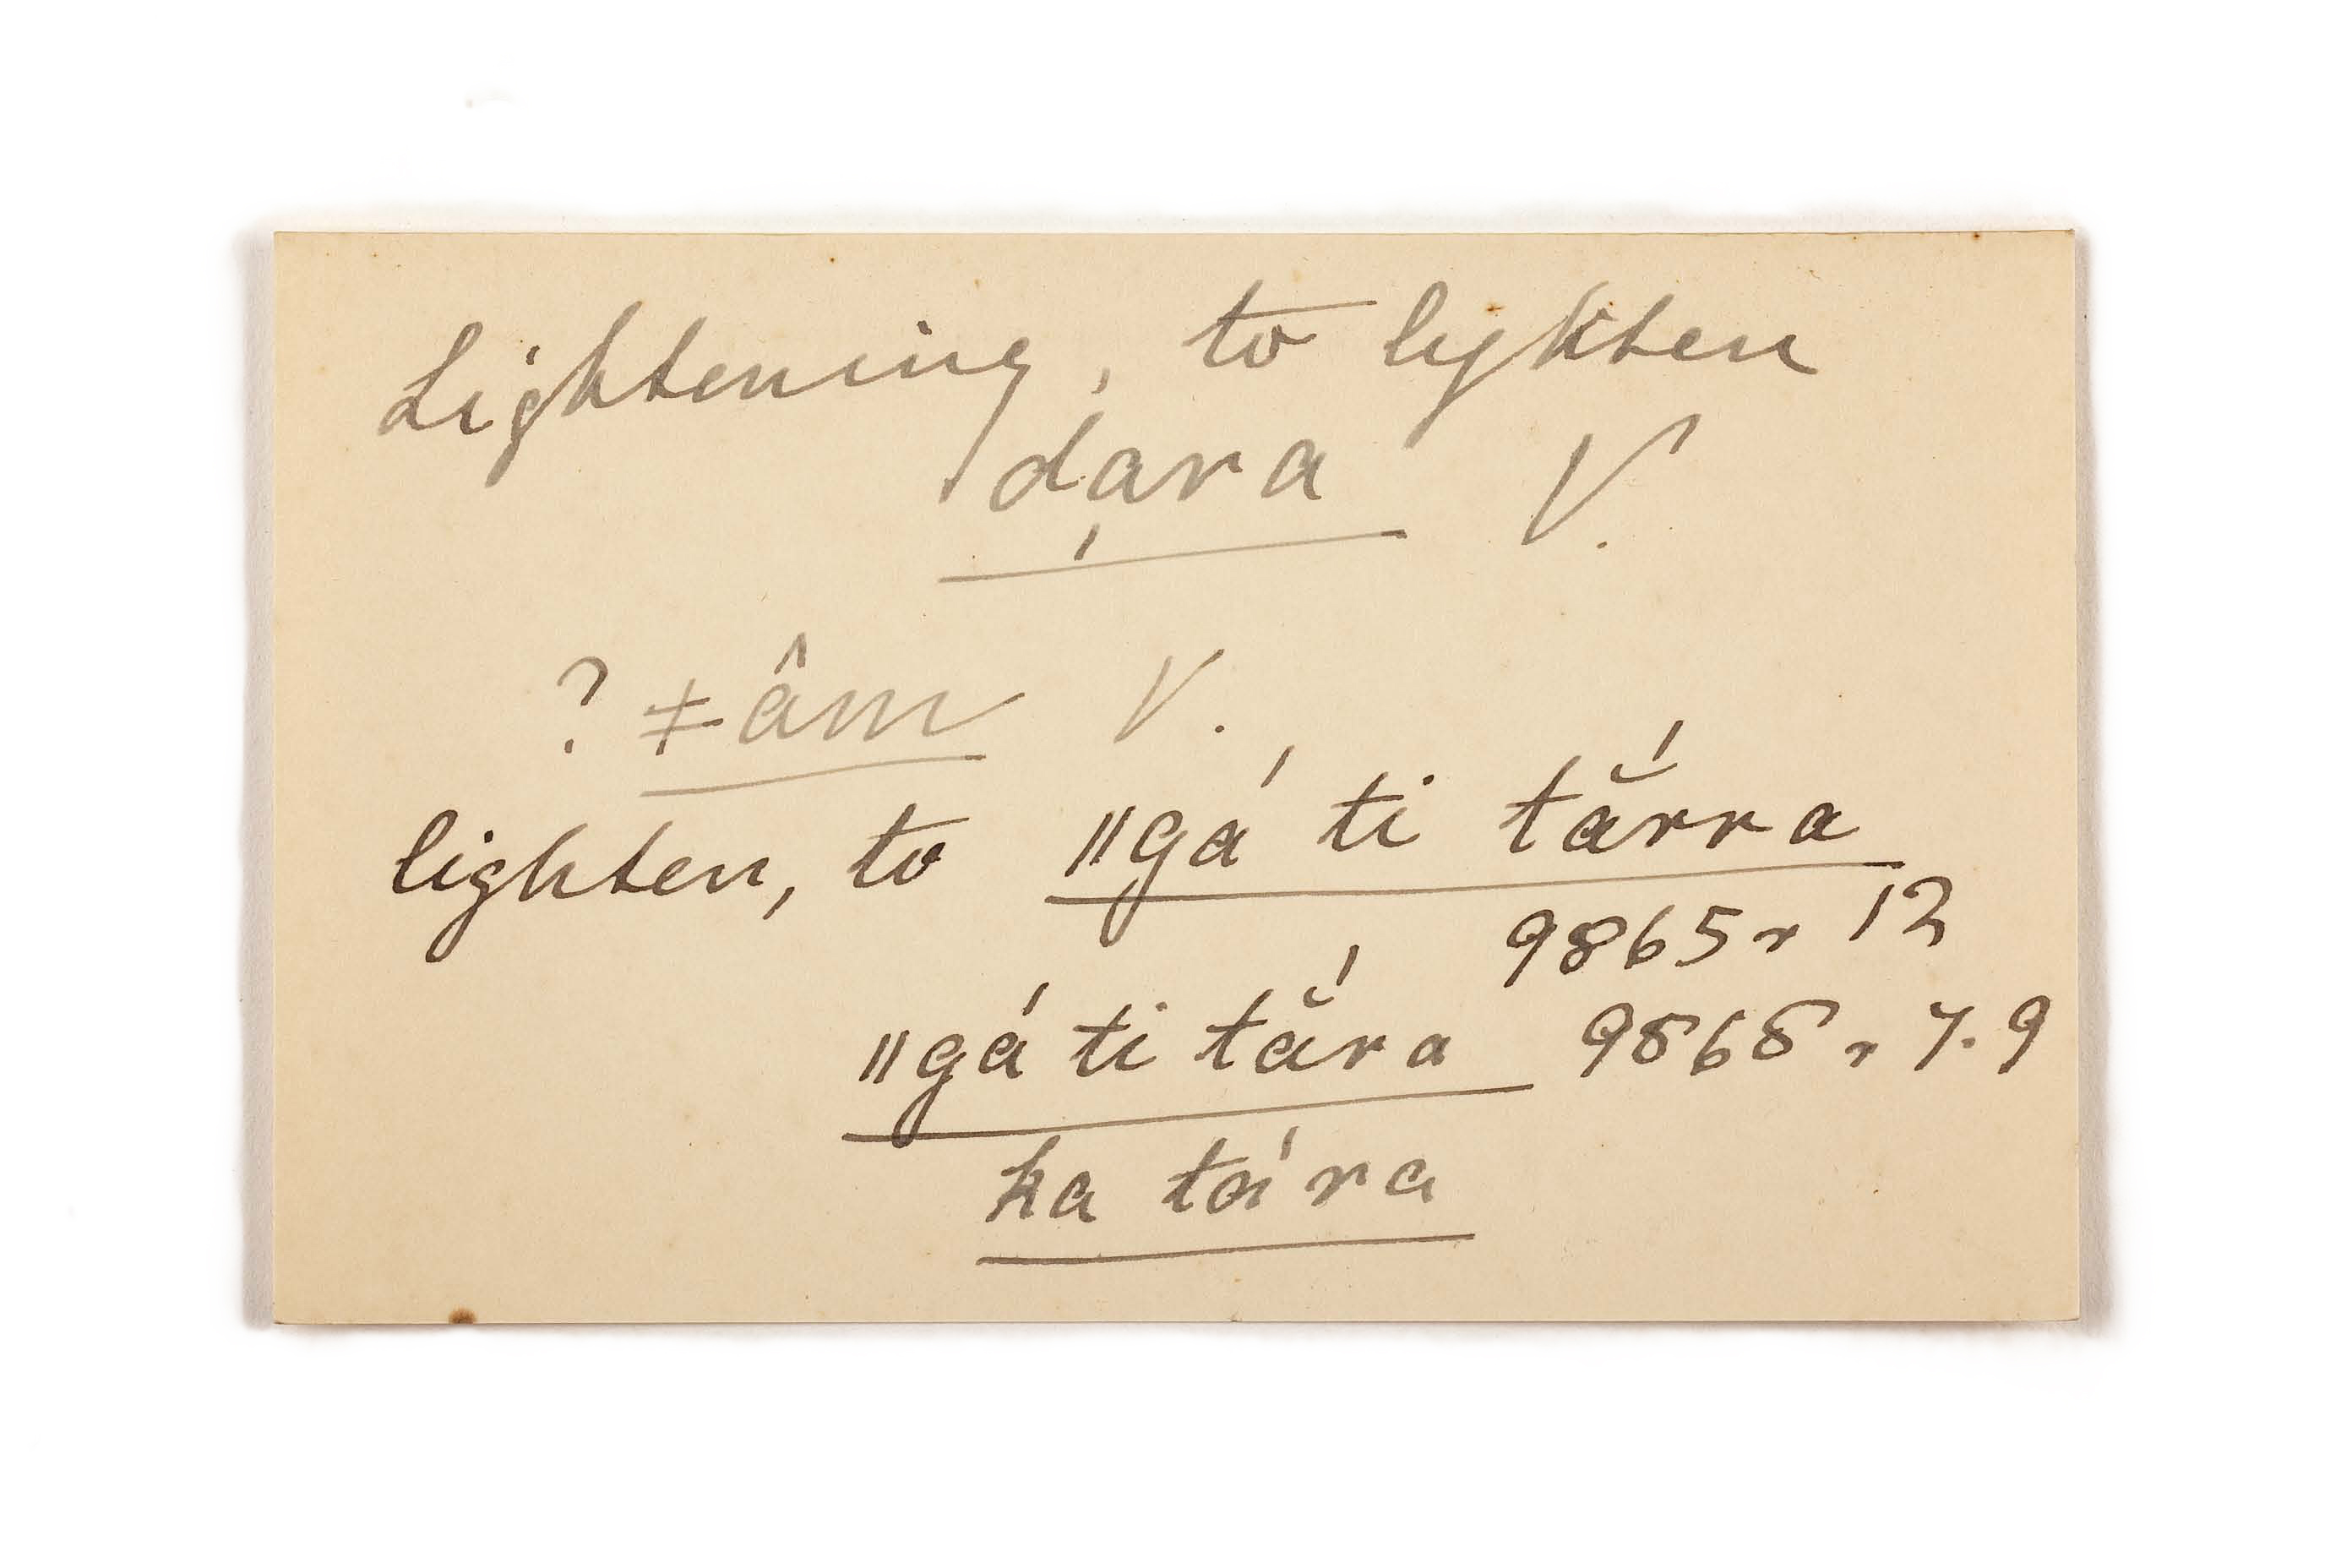 Lightening, to lighten
dara V.
? ǂâm V.
lighten, to ǁgá ti tắrra
9865 r 12
ǁgá ti tắra 9868 r 7.9
ka tára